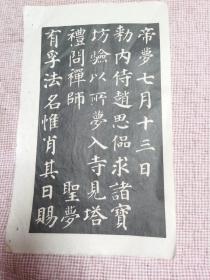 帝夢七月十三日
勑內侍趙思偘求諸寶
坊驗以所夢入寺見塔
禮問禪師　聖夢
有孚法名惟肖其日賜